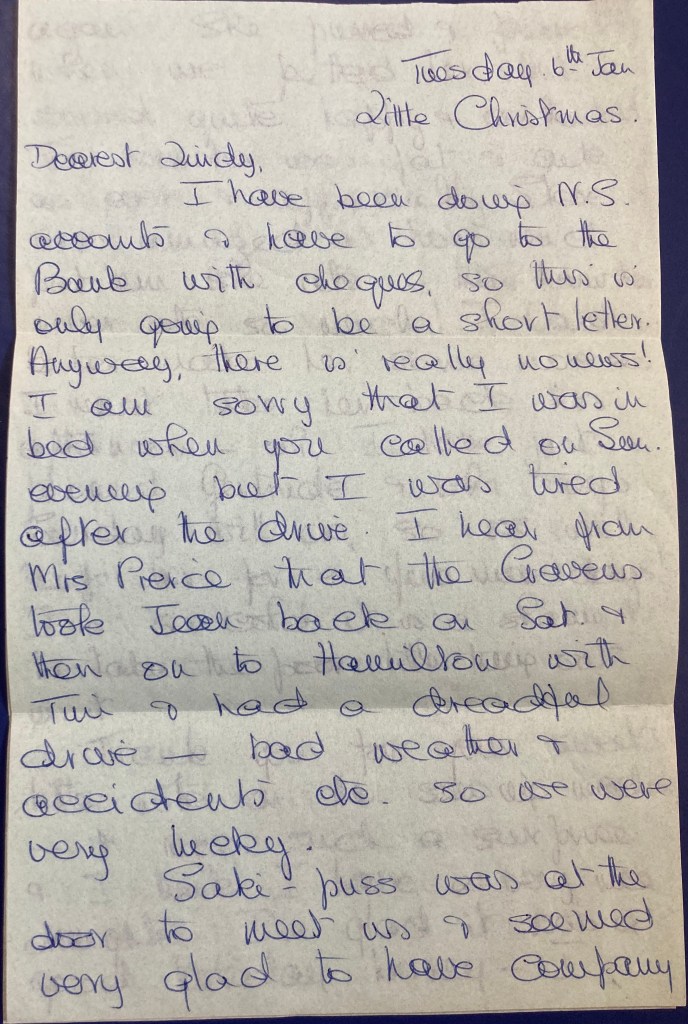 Tuesday. 6th Jan
Little Christmas.
Dearest Lindy,
I have been doing N.S.
accounts & have to go to the
Bank with cheques, so this is
only going to be a short letter.
Anyway, there is really no news!
I am sorry that I was in
bed when you called on Sun.
evening but I was tired
after the drive. I hear from
Mrs Pierce that the Cravens
took Jean back on Sat. &
then on to Hamilton with
Tim & had a dreadful
drive — bad weather &
accidents etc. so we were
very lucky.
Saki-puss was at the
door to meet us & seemed
very glad to have company